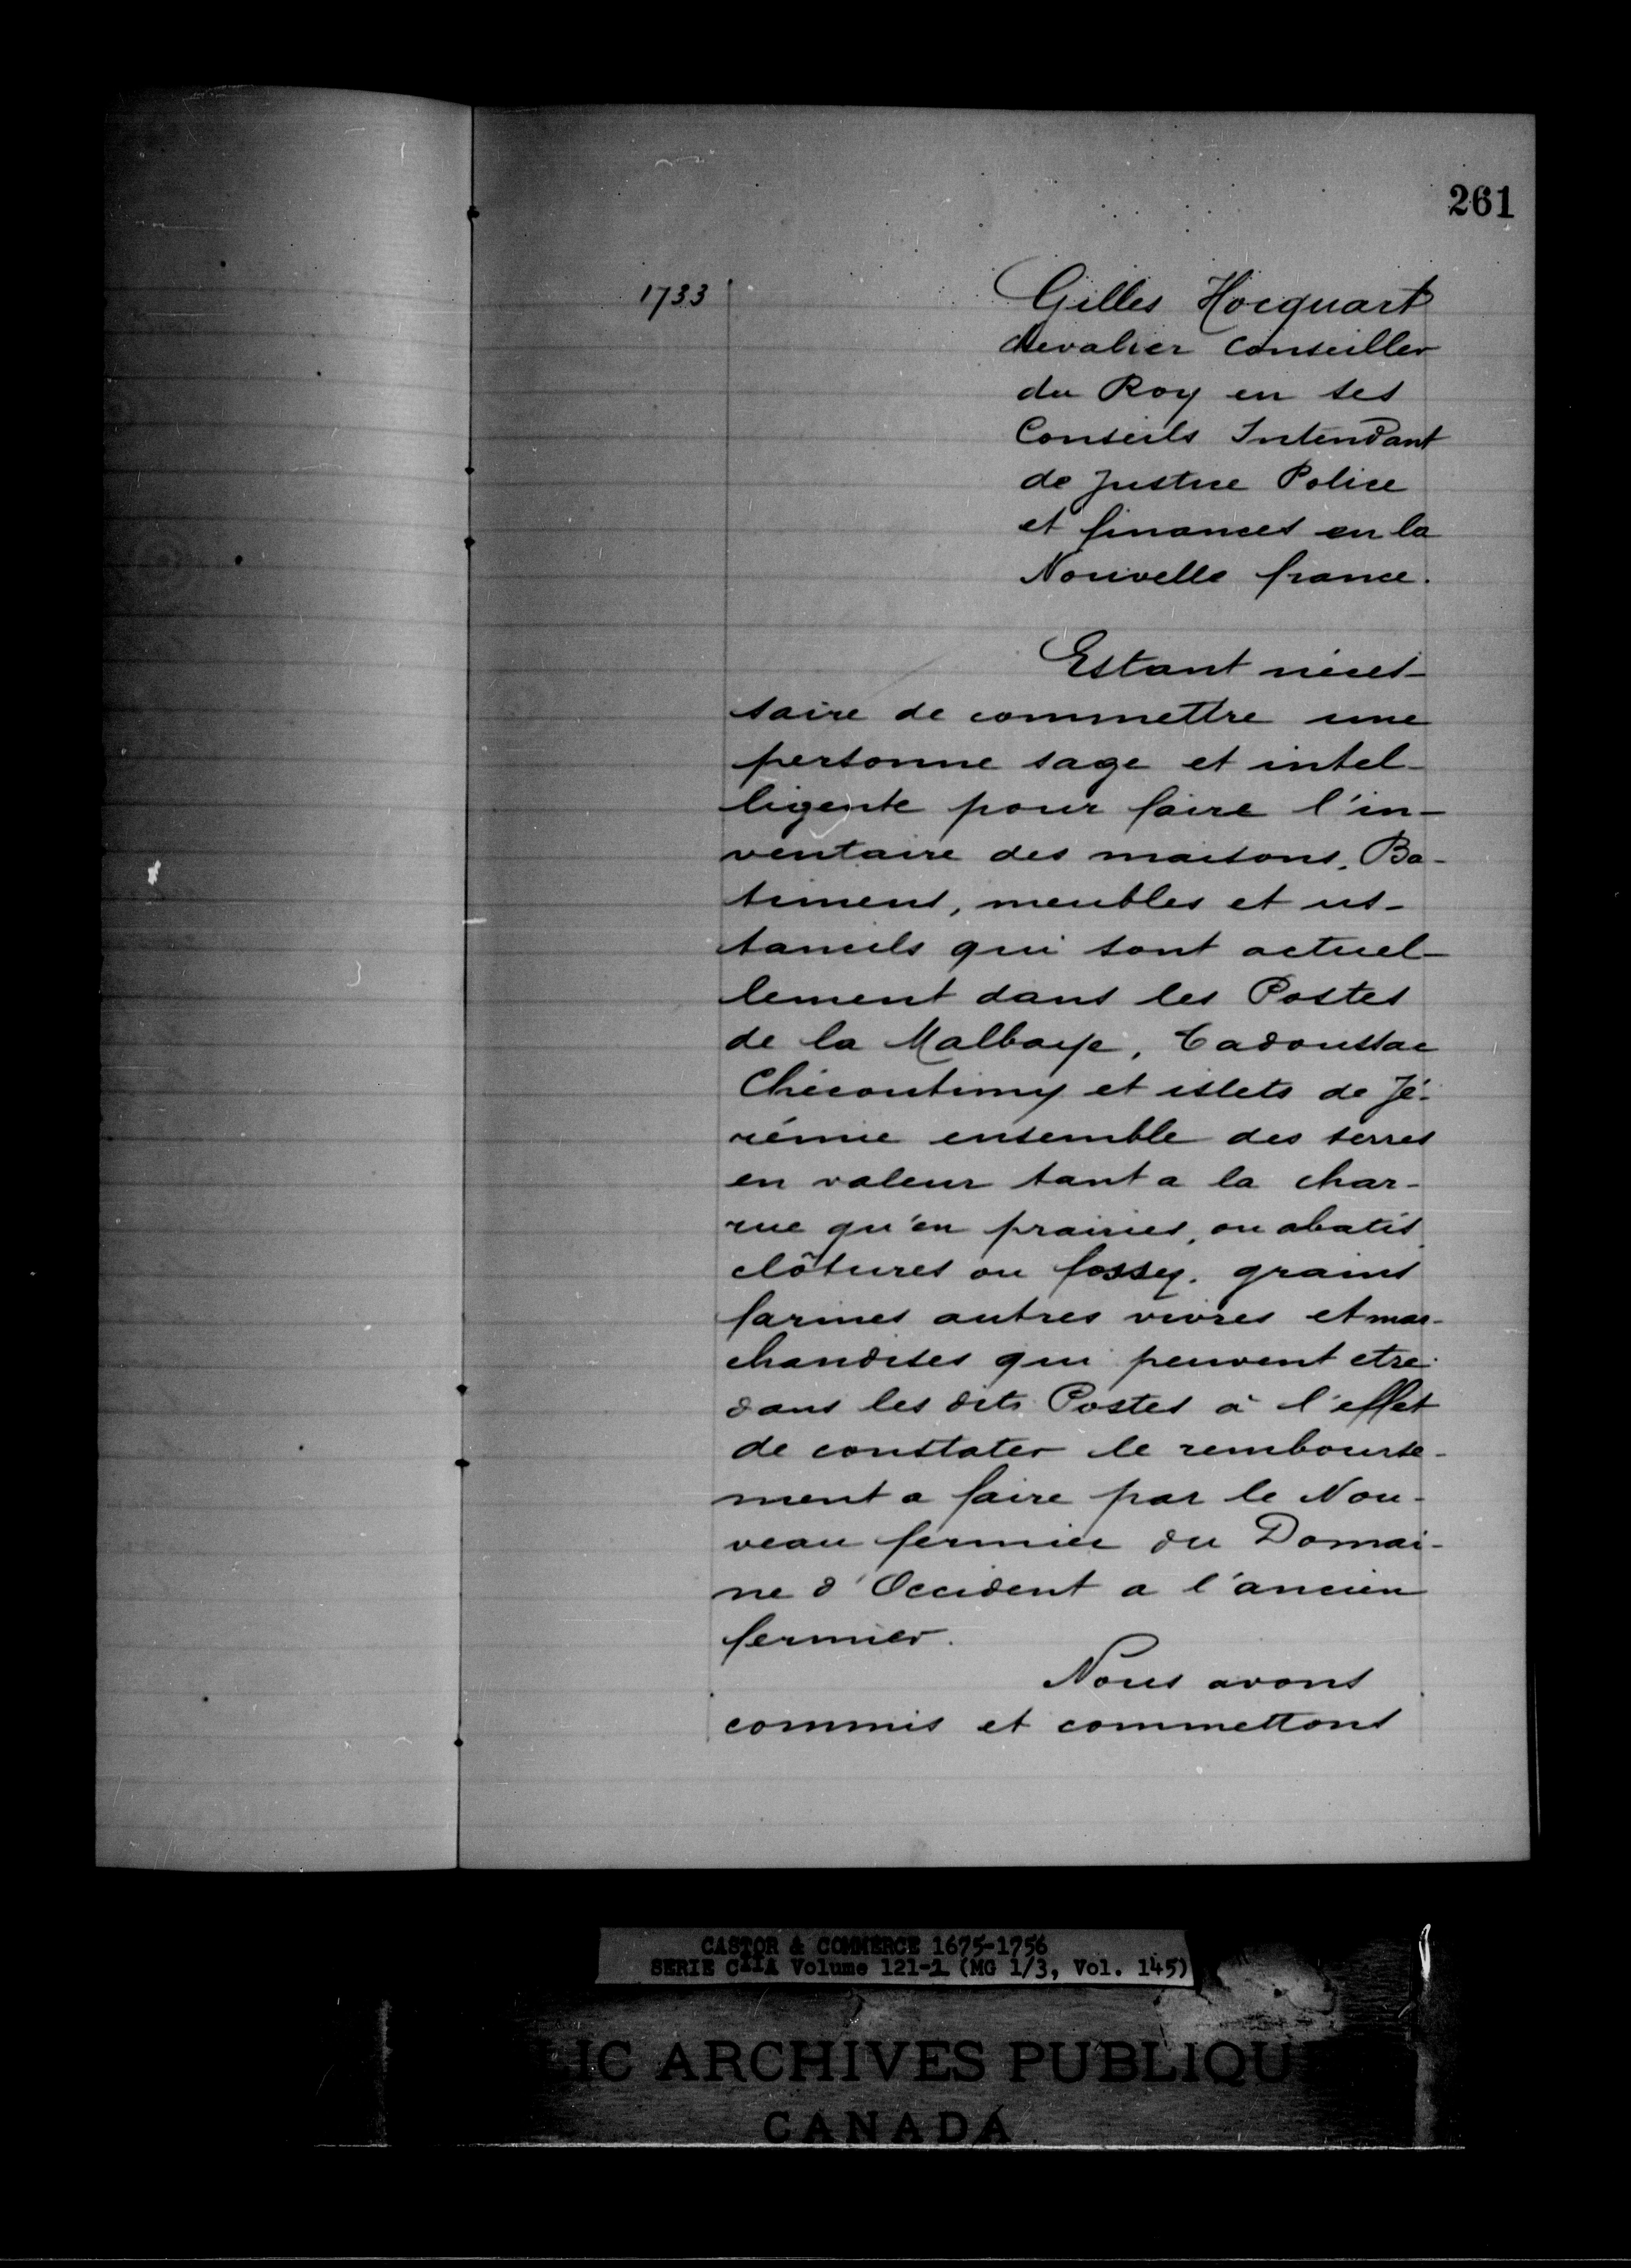 261
1733
Gilles Hocquart
chevalier Conseiller
du Roy en ses
Conseils Intendant
de Justice Police
et finances en la
Nouvelle france.
Estant néces-
saire de commettre une
personne sage et intel-
ligente pour faire l'in-
ventaire des maisons, Ba-
timens, meubles et us-
tancils qui sont actuel-
lement dans les Postes
de la Malbaye, Tadoussac
Chécoutimy et islets de Jé-
rémie ensemble des terres
en valeur tant a la char-
rue qu'en prairies, ou abatis,
clôtures ou fossey. grains
farines autres vivres et mar-
chandises qui peuvent etre
dans les dits Postes à l'effet
de constater le rembourse-
ment a faire par le Nou-
veau fermier du Domai-
ne d'Occident a l'ancien
fermier.
Nous avons
commis et commettons
CASTOR & COMMERCE 1675-1756
SERIE C11A Volume 121-1 (MG 1/3, Vol. 145)
IC ARCHIVES PUBLIQU
CANADA